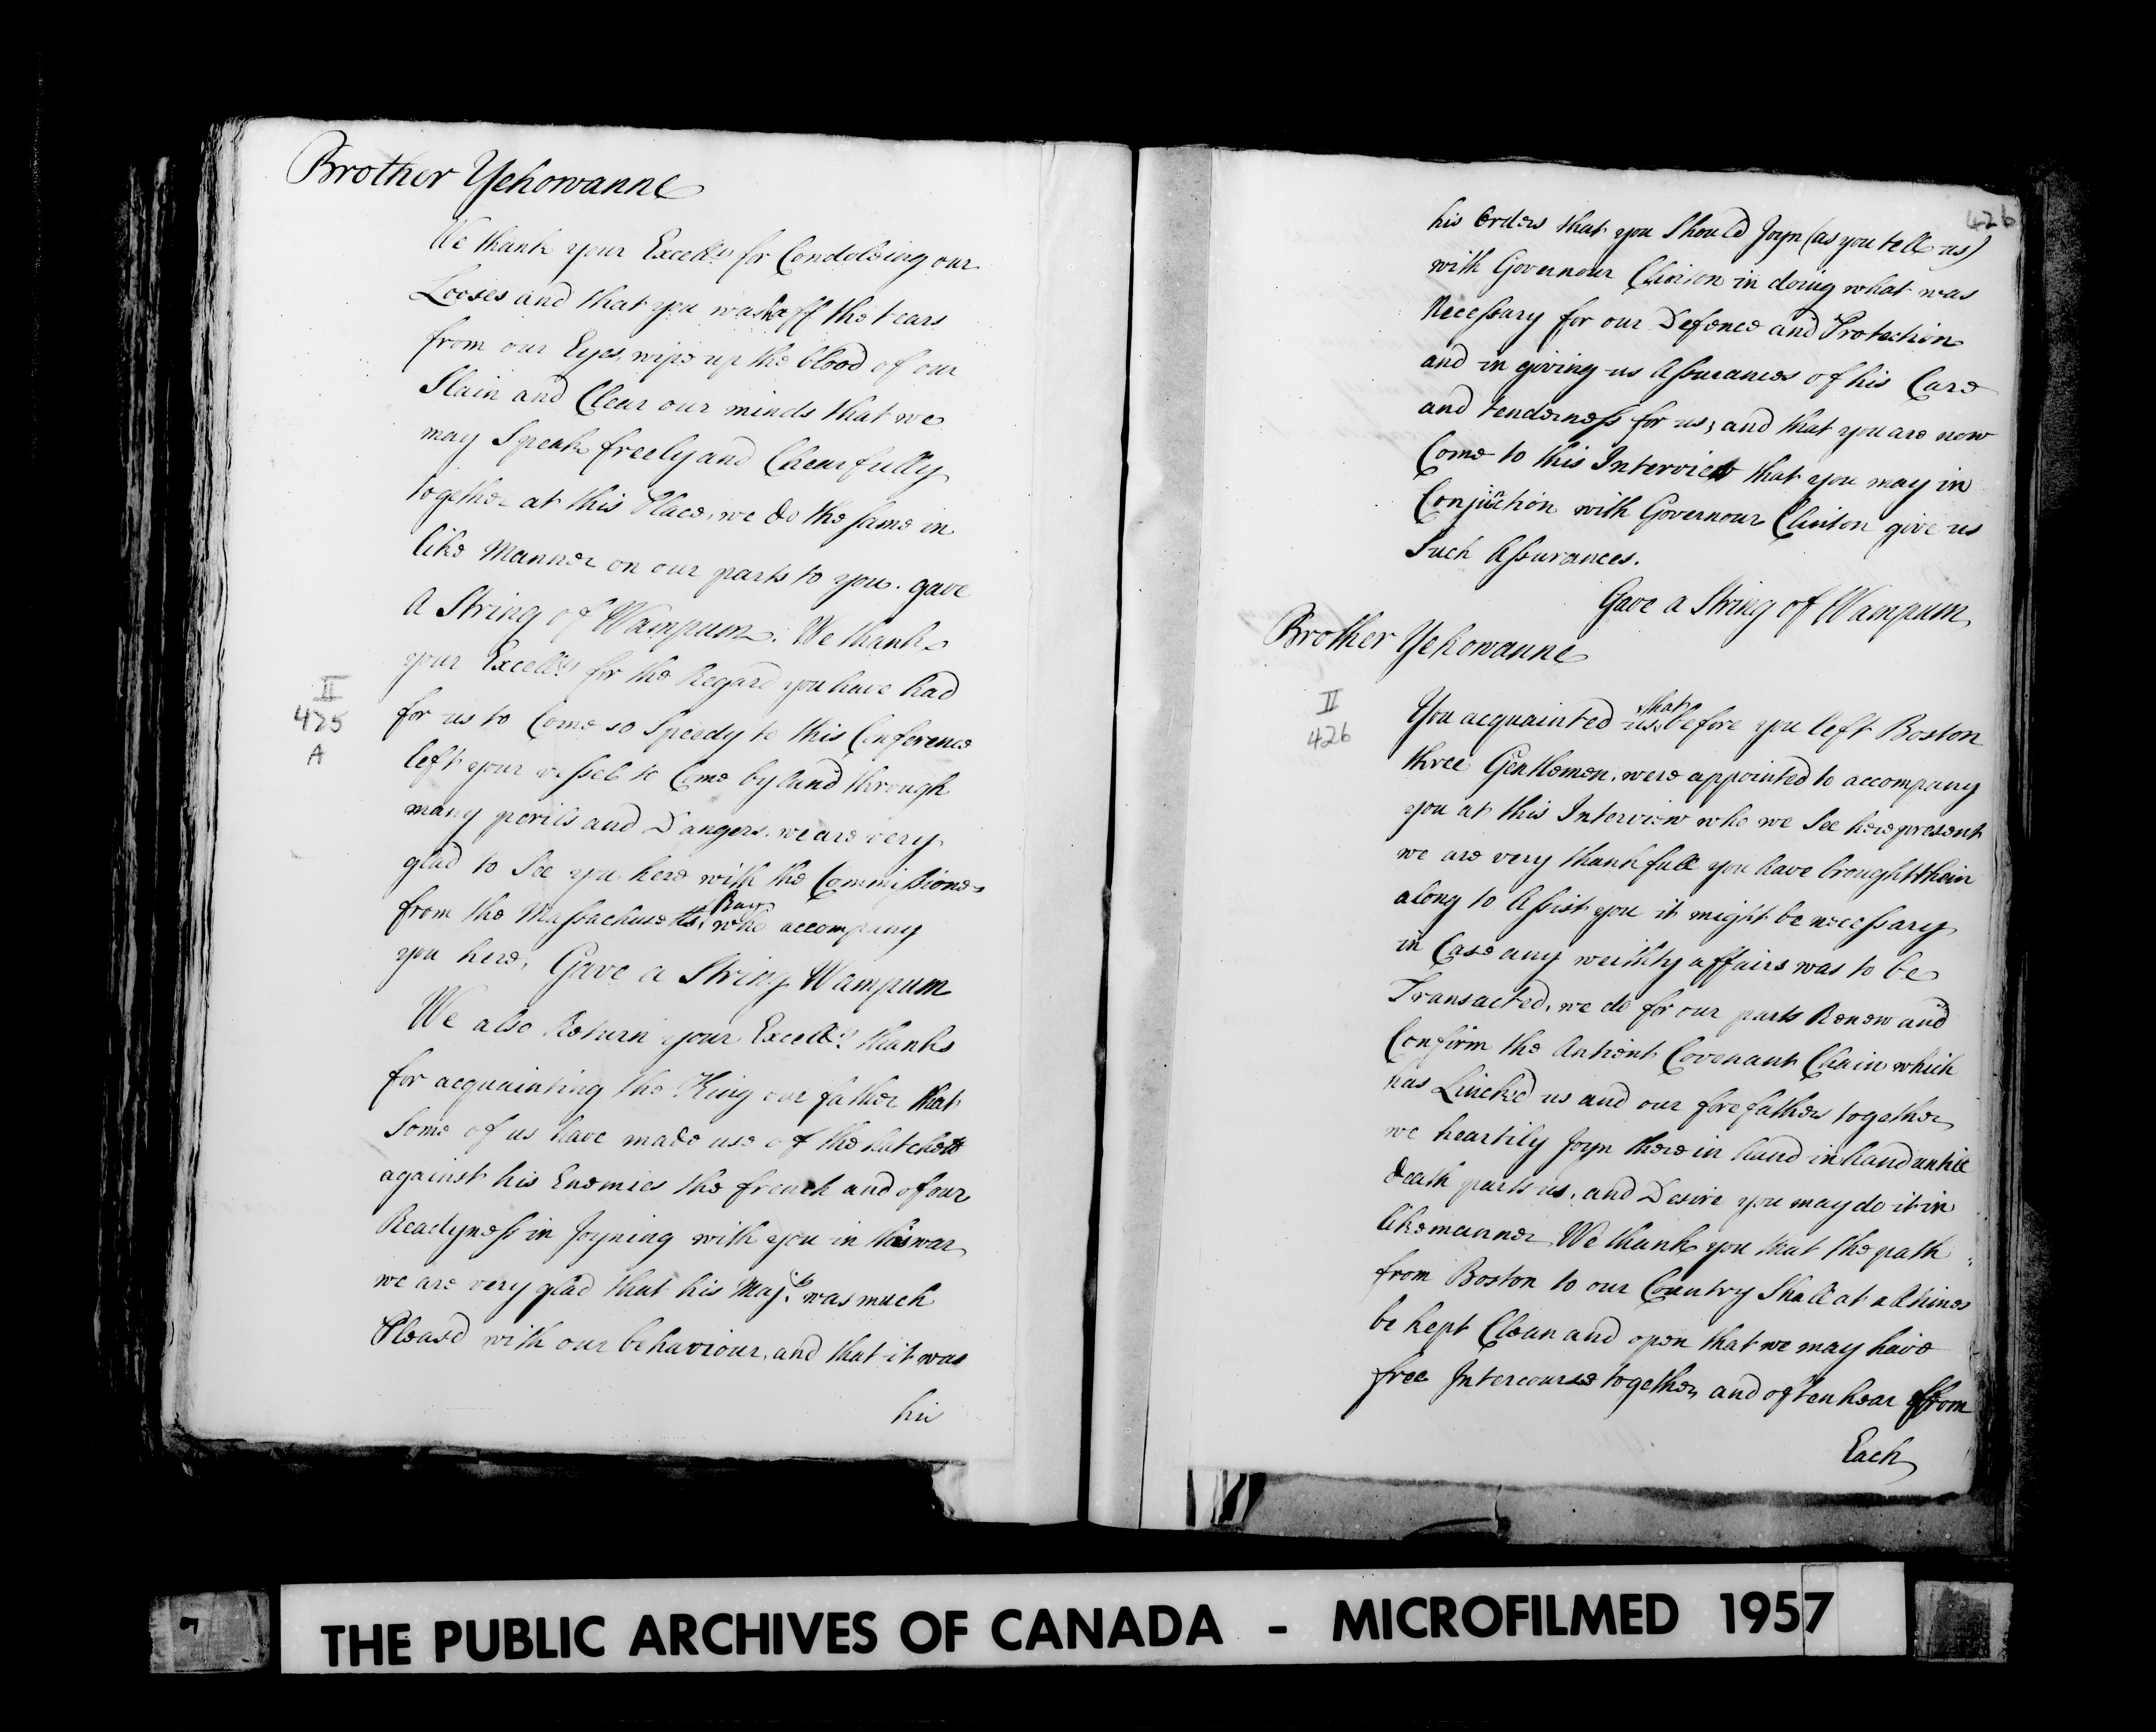 Brother Yehowanne
We thank your Excell:cy for Condoleing our
Looses and that you wash off the tears
from our Eyes, wipe up the blood of our
Slain and Clear our minds that we
may Speak freely and Chearfully
together at this Place, we do the same in
like Manner on our parts to you. gave
A String of Wampum. We thank
your Excell:cy for the Regard you have had
II
425
A
for us to Come so Speedy to this Conference
left your vessel to Come by land through
many perils and Dangers. we are very
glad to See you here with the Commissioners
from the Massachusetts Bay who accompany
you here, Gave a String Wampum
We also Return your Excell:cy thanks
for acquainting the King our father that
Some of us have made use of the hatchett
against his Enemies the french and of our
Readyness in Joyning with you in this war
we are very glad that his Maj:ty was much
Pleased with our behaviour, and that it was
his
426
his Orders that you Should Joyn (as you tell us)
with Governour Clinton in doing what was
Necessary for our Defence and Protection
and in giving us Assurances of his Care
and tenderness for us; and that you are now
Come to this Interview that you may in
Conjunction with Governour Clinton give us
Such Assurances.
Gave a String of Wampum
Brother Yehowanne
II
426
You acquainted us that before you left Boston
three Gentlemen, were appointed to accompany
you at this Interview who we See here present
we are very thankfull you have brought them
along to Assist you it might be necessary
in Case any weihty affairs was to be
Transacted, we do for our parts Renew and
Confirm the Antient Covenant Chain which
has Lincked us and our forefathers together
we heartily Joyn there in hand in hand untill
death parts us, and Desire you may do it in
like manner We thank you that the path
from Boston to our Country Shall at all times
be kept Clean and open that we may have
free Intercourse together and often hear from
Each
THE PUBLIC ARCHIVES OF CANADA - MICROFILMED 1957